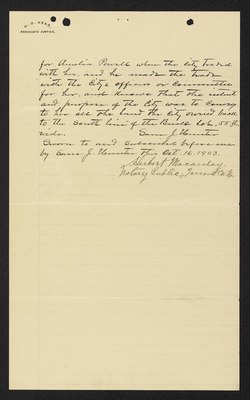 ASSOCIATE JUSTICE.
for Amelia Powell when the City traded
with her, and he made the trade
with the City's officers or Committee
for her, and knows that the intent
and purpose of the City was to convey
to her all the land the City owned back
to the South line of the Buell lot, 55 ft
wide. Sam J. Hunter
Sworn to and subscribed before me
by Sam J. Hunter this Oct. 16. 1903.
Herbert Macaulay,
Notary Public, Tarrant Co